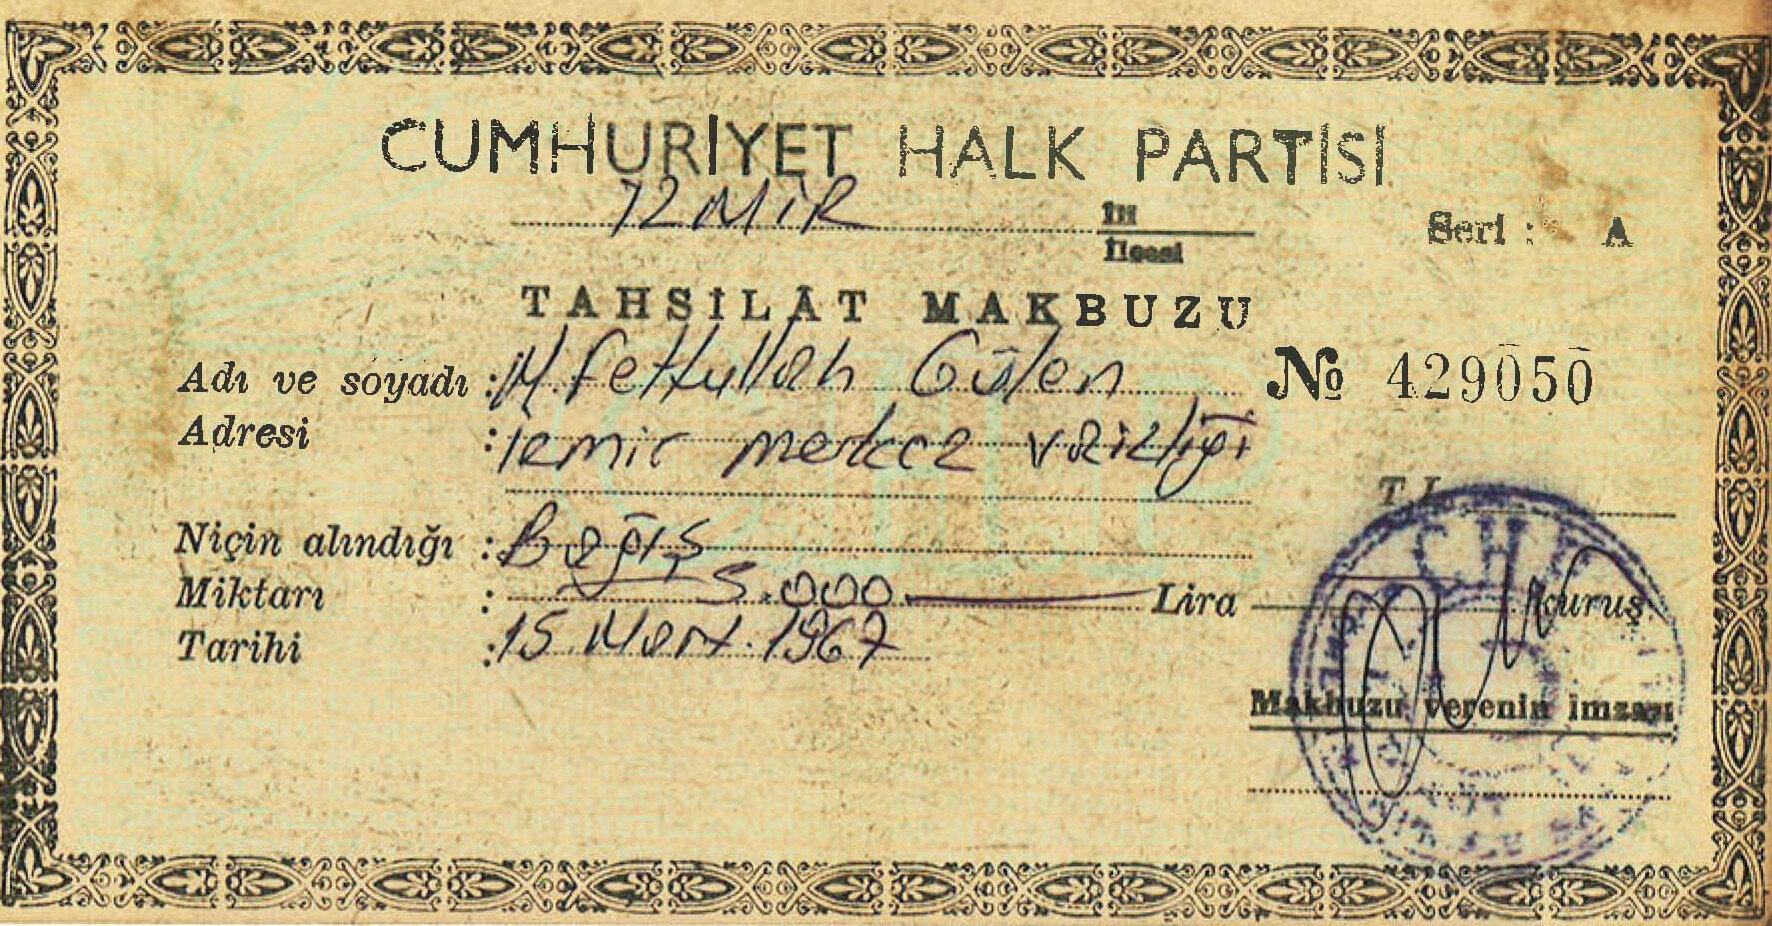 CUMHURİYET HALK PARTİSİ
İZMİR İli
İlcesi
Seri : A
TAHSİLÂT MAKBUZU
Adı ve soyadı : M. Fethullah Gülen
№ 429050
Adresi : İzmir merkez vaizliği
T.L.
Niçin alındığı : Bağış
Miktarı : 5.000 Lira Kuruş
Tarihi : 15 Mart 1967
Makbuzu verenin imzası
CHP